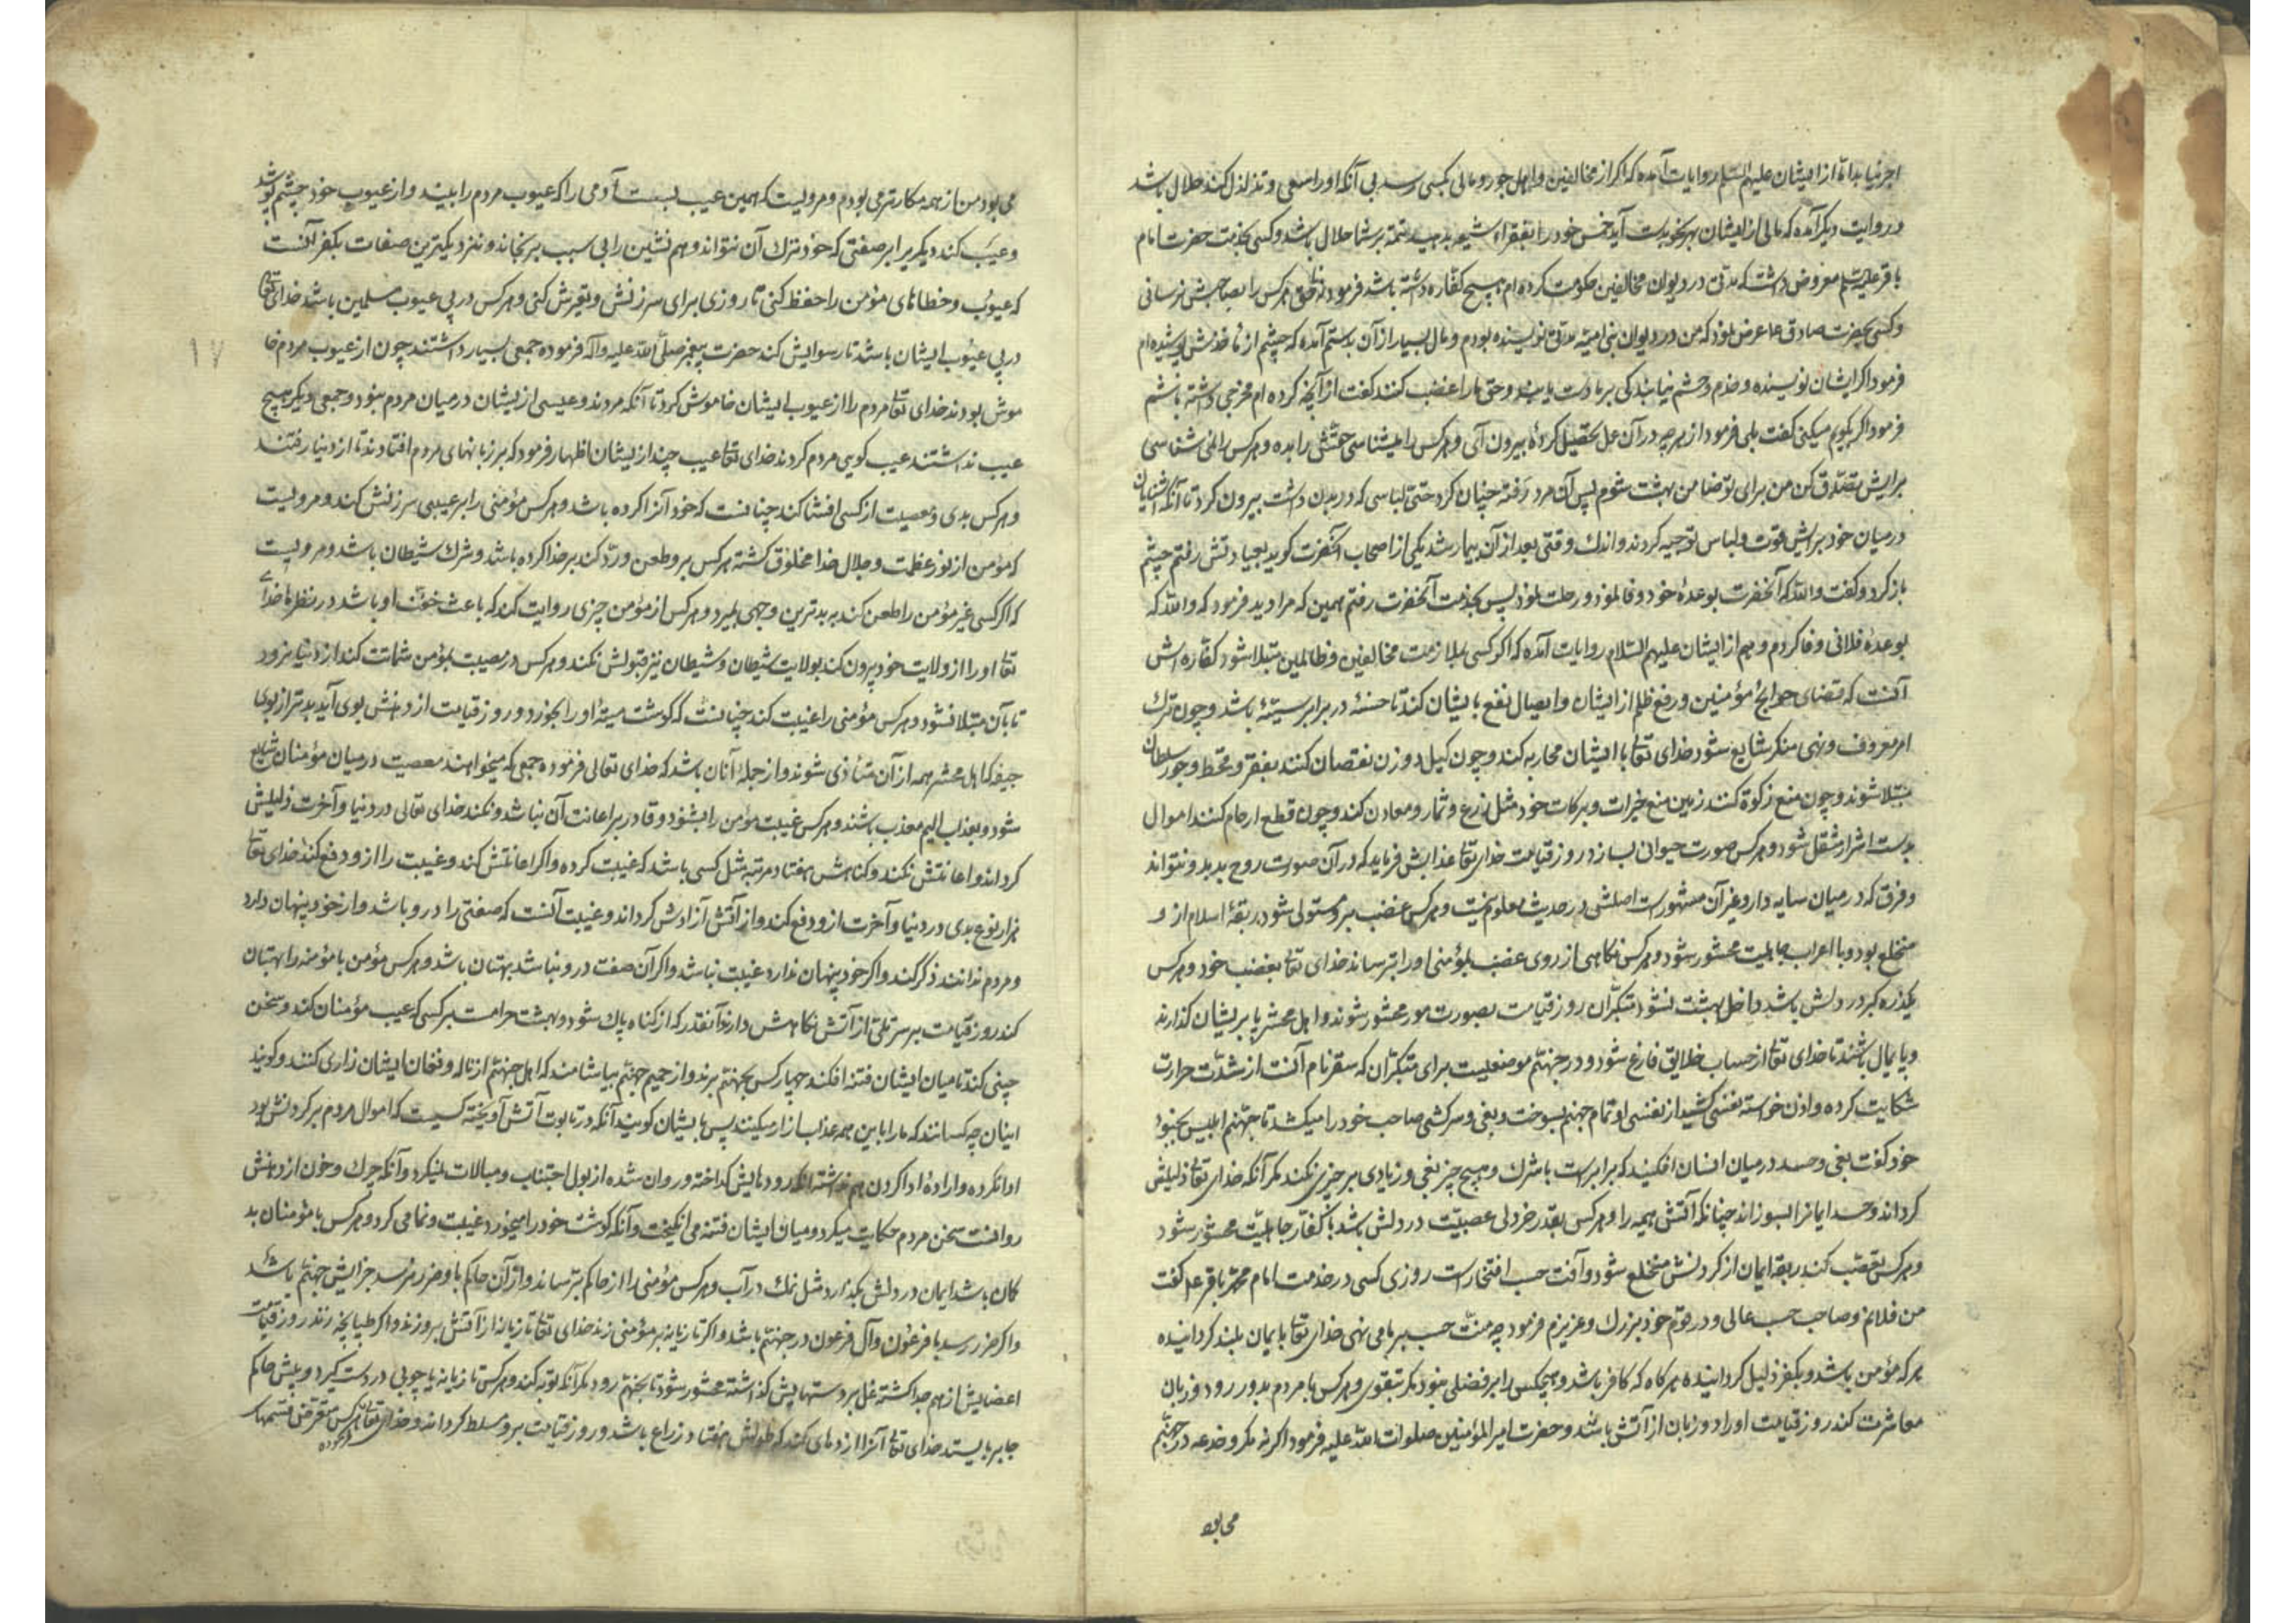 اجر نیابد اما از ایشان علیهم السلم روایات آمده که اگر از مخالفین و اهل جور و مالی بکسی رسد بی آنکه او را سعی و تذلل کند حلال باشد
و در روایت دیگر آمده که مالی از ایشان بهر نحو بدست آید خمس خود را بفقراء شیعه بدهید تتمه بر شما حلال باشد و کسی بخدمت حضرت امام
باقر علیه السلم معروض داشت که مدتی در دیوان مخالفین حکومت کرده ام هیچ کفاره داشته باشد فرمود نه تا حق هر کس را بصاحبش نرسانی
و کسی بحضرت صادق ع عرض نمود که من در دیوان بنی امیه مدتی نویسنده بودم و مال بسیار از آن بدستم آمده که چشم از مأخذش پوشیده ام
فرمود اگر ایشان نویسنده و خدم و حشم نیابند کی بر مادت یابند و حق ما را غصب کنند گفت از آنچه کرده ام مخرجی داشته باشم
فرمود اگر بگویم میکنی گفت بلی فرمود از هر چه در آن عمل تحصیل کردهٔ بیرون آی و هر کس را میشناسی حقش را بده و هر کس را نمی شناسی
برایش تصدق کن من برای تو ضامن بهشت شوم پس آن مرد رفته چنان کرد حتی لباسی که در بدن داشت بیرون کرد تا آنکه آشنایان
در میان خود برایش قوت و لباس توجیه کردند و اندک وقتی بعد از آن بیمار شد یکی از اصحاب آنحضرت گوید بعیادتش رفتم چشم
باز کرد و گفت والله که آنحضرت بوعدهٔ خود وفا نمود و رحلت نمود پس بخدمت آنحضرت رفتم همین که مرا دید فرمود که والله که
بوعدهٔ فلانی وفا کردم و هم از ایشان علیهم السلام روایات آمده که اگر کسی بملازمت مخالفین و ظالمین مبتلا شود کفاره اش
آنست که قضای حوایج مؤمنین و رفع ظلم از ایشان و ایصال نفع بایشان کند تا حسنهٔ در برابر سیئهٔ باشد و چون ترک
امر معروف و نهی منکر شایع شود خدای تعالی با ایشان محاربه کند و چون کیل و وزن نقصان کنند بفقر و قحط و جور سلطان
مبتلا شوند و چون منع زکوة کنند زمین منع خیرات و برکات خود مثل زرع و ثمار و معادن کند و چون قطع ارحام کنند اموال
بدست اشرار منتقل شود و هر کس صورت حیوانی بسازد روز قیامت خدای تعالی عذابش فرماید که در آن صورت روح بدمد و نتواند
و فرق که در میان سایه دار و غیر آن مشهور است اصلش در حدیث معلوم نیست و هر کس غضب برو مستولی شود ربقهٔ اسلام از و
منخلع بود و با اعراب جاهلیت محشور شود و هر کس نگاهی از روی غضب بمؤمنی او را بترساند خدای تعالی بغضب خود و هر کس
یکذره کبر در دلش باشد داخل بهشت نشود متکبران روز قیامت بصورت مور محشور شوند و اهل محشر پا بر ایشان گذارند
و پایمال باشند تا خدای تعالی از حساب خلایق فارغ شود و در جهنم موضعیست برای متکبران که سقر نام آنست از شدت حرارت
شکایت کرده و اذن خواسته نفسی کشید از نفسی او تمام جهنم بسوخت و بغی و سرکشی صاحب خود را میکشد تا جهنم ابلیس بجنود
خود گفت بغی و حسد در میان انسان افکنید که برابر است با شرک و هیچ چیز بغی و زیادی بر چیزی نکند مگر آنکه خدای تعالی ذلیلش
گرداند و حسد ایمانرا بسوزاند چنانکه آتش هیمه را و هر کس بقدر خردلی عصبیت در دلش باشد با کفار جاهلیت محشور شود
و هر کس تعصب کند ربقهٔ ایمان از گردنش منخلع شود و آفت حسب افتخار است روزی کسی در خدمت امام محمد باقر ع گفت
من فلانم و صاحب حسب عالی و در قوم خود بزرگ و عزیزم فرمود چه منت حسب بر ما می نهی خدای تعالی بایمان بلند گردانیده
هر که مؤمن باشد و بکفر ذلیل گردانیده هر گاه که کافر باشد و هیچکس را بر فضلی نبود مگر بتقوی و هر کس با مردم بدو رو و دو زبان
معاشرت کند روز قیامت او را دو زبان از آتش باشد و حضرت امیر المؤمنین صلوات الله علیه فرمود اگر نه مکر و خدعه در جهنم
می بود
می بود من از همه مکارتر می بودم و مرویست که همین عیب بست آدمی را که عیوب مردم را بیند و از عیوب خود چشم پوشد
و عیب کند دیگریرا بر صفتی که خود ترک آن نتواند و هم نشین را بی سبب برنجاند و نزدیکترین صفات بکفر آنست
که عیوب و خطاهای مؤمن را حفظ کنی تا روزی برای سرزنش و تعیرش کنی و هر کس در پی عیوب مسلمین باشد خدای تعالی
در پی عیوب ایشان باشد تا رسوایش کند حضرت پیغمبر صلی الله علیه و آله فرموده جمعی بسیار داشتند چون از عیوب مردم خا
۱۷
موش بودند خدای تعالی مردم را از عیوب ایشان خاموش کرد تا آنکه مردند و عیبی از ایشان در میان مردم نبود و جمعی دیگر هیچ
عیب نداشتند عیب گویی مردم کردند خدای تعالی عیب چند از ایشان اظهار فرمود که بر زبانهای مردم افتادند تا از دنیا رفتند
و هر کس بدی و معصیت از کسی افشا کند چنانست که خود آنرا کرده باشد و هر کس مؤمنی را بر عیبی سرزنش کند و مرویست
که مؤمن از نور عظمت و جلال خدا مخلوق گشته هر کس برو طعن و رد کند بر خدا کرده باشد و شرک شیطان باشد و مرویست
که اگر کسی غیر مؤمن را طعن کند به بدترین وجهی بمیرد و هر کس از مؤمن چیزی روایت کند که باعث خفت او باشد در نظرها خدای
تعالی او را از ولایت خود بیرون کند بولایت شیطان و شیطان نیز قبولش نکند و هر کس در مصیبت بمؤمن شماتت کند از دنیا نرود
تا بآن مبتلا نشود و هر کس مؤمنی را غیبت کند چنانست که گوشت میتهٔ او را بخورد و روز قیامت از دهنش بوی آید بدتر از بوی
جیفه که اهل محشر همه از آن متأذی شوند و از جملهٔ آنان باشد که خدای تعالی فرموده جمعی که میخواهند معصیت در میان مؤمنان شایع
شود و بعذاب الیم معذب باشند و هر کس غیبت مؤمن را بشنود و قادر بر اعانت آن باشد و نکند خدای تعالی در دنیا و آخرت ذلیلش
گرداند و اعانتش نکند و گناهش هفتاد مرتبه مثل کسی باشد که غیبت کرده و اگر اعانتش کند و غیبت را از و دفع کند خدای تعالی
هزار نوع بدی در دنیا و آخرت از و دفع کند و از آتش آزادش گرداند و غیبت آنست که صفتی را در و باشد و از خود پنهان دارد
و مردم ندانند ذکر کند و اگر خود پنهان ندارد غیبت نباشد و اگر آن صفت در و نباشد بهتان باشد و هر کس مؤمن یا مؤمنه را بهتان
کند روز قیامت بر سر تلی از آتش نگاهش دارند آنقدر که از گناه پاک شود و بهشت حرامست بر کسی که عیب مؤمنان کند و سخن
چینی کند تا میان ایشان فتنه افکند چهار کس بجهنم برند و از حمیم جهنم بیاشامند که اهل جهنم از ناله و فغان ایشان زاری کنند و گویند
اینان چه کسانند که ما را با این همه عذاب آزار میکنند پس بایشان گویند آنکه در تابوت آتش آویخته کسیست که اموال مردم بر گردنش بود
ادا نکرده و ارادهٔ ادا کردن هم نداشته آنکه روده هایش گداخته و روان شده از بول اجتناب و مبالات نمیکرد و آنکه چرک و خون از دهنش
روانست سخن مردم حکایت میکرد و میان ایشان فتنه می انگیخت و آنکه گوشت خود را میخورد غیبت و نمامی کرد و هر کس با مؤمنان بد
گمان باشد ایمان در دلش بگدازد مثل نمک در آب و هر کس مؤمنی را از حاکم بترساند و از آن حاکم باو ضرر نرسد جزایش جهنم باشد
و اگر ضرر رسد با فرعون و آل فرعون در جهنم باشد و اگر تازیانه بر مؤمنی زند خدای تعالی تازیانه از آتش برو زند و اگر طپانچه زند روز قیامت
اعضایش از هم جدا گشته غل بر دستهایش گذاشته محشور شود تا بجهنم رود مگر آنکه توبه کند و هر کس تازیانه یا چوبی در دست گیرد و پیش حاکم
جابر بایستد خدای تعالی آنرا اژدهای کند که طولش هفتاد زراع باشد و روز قیامت برو مسلط گرداند و خدای تعالی هر کس متعرض